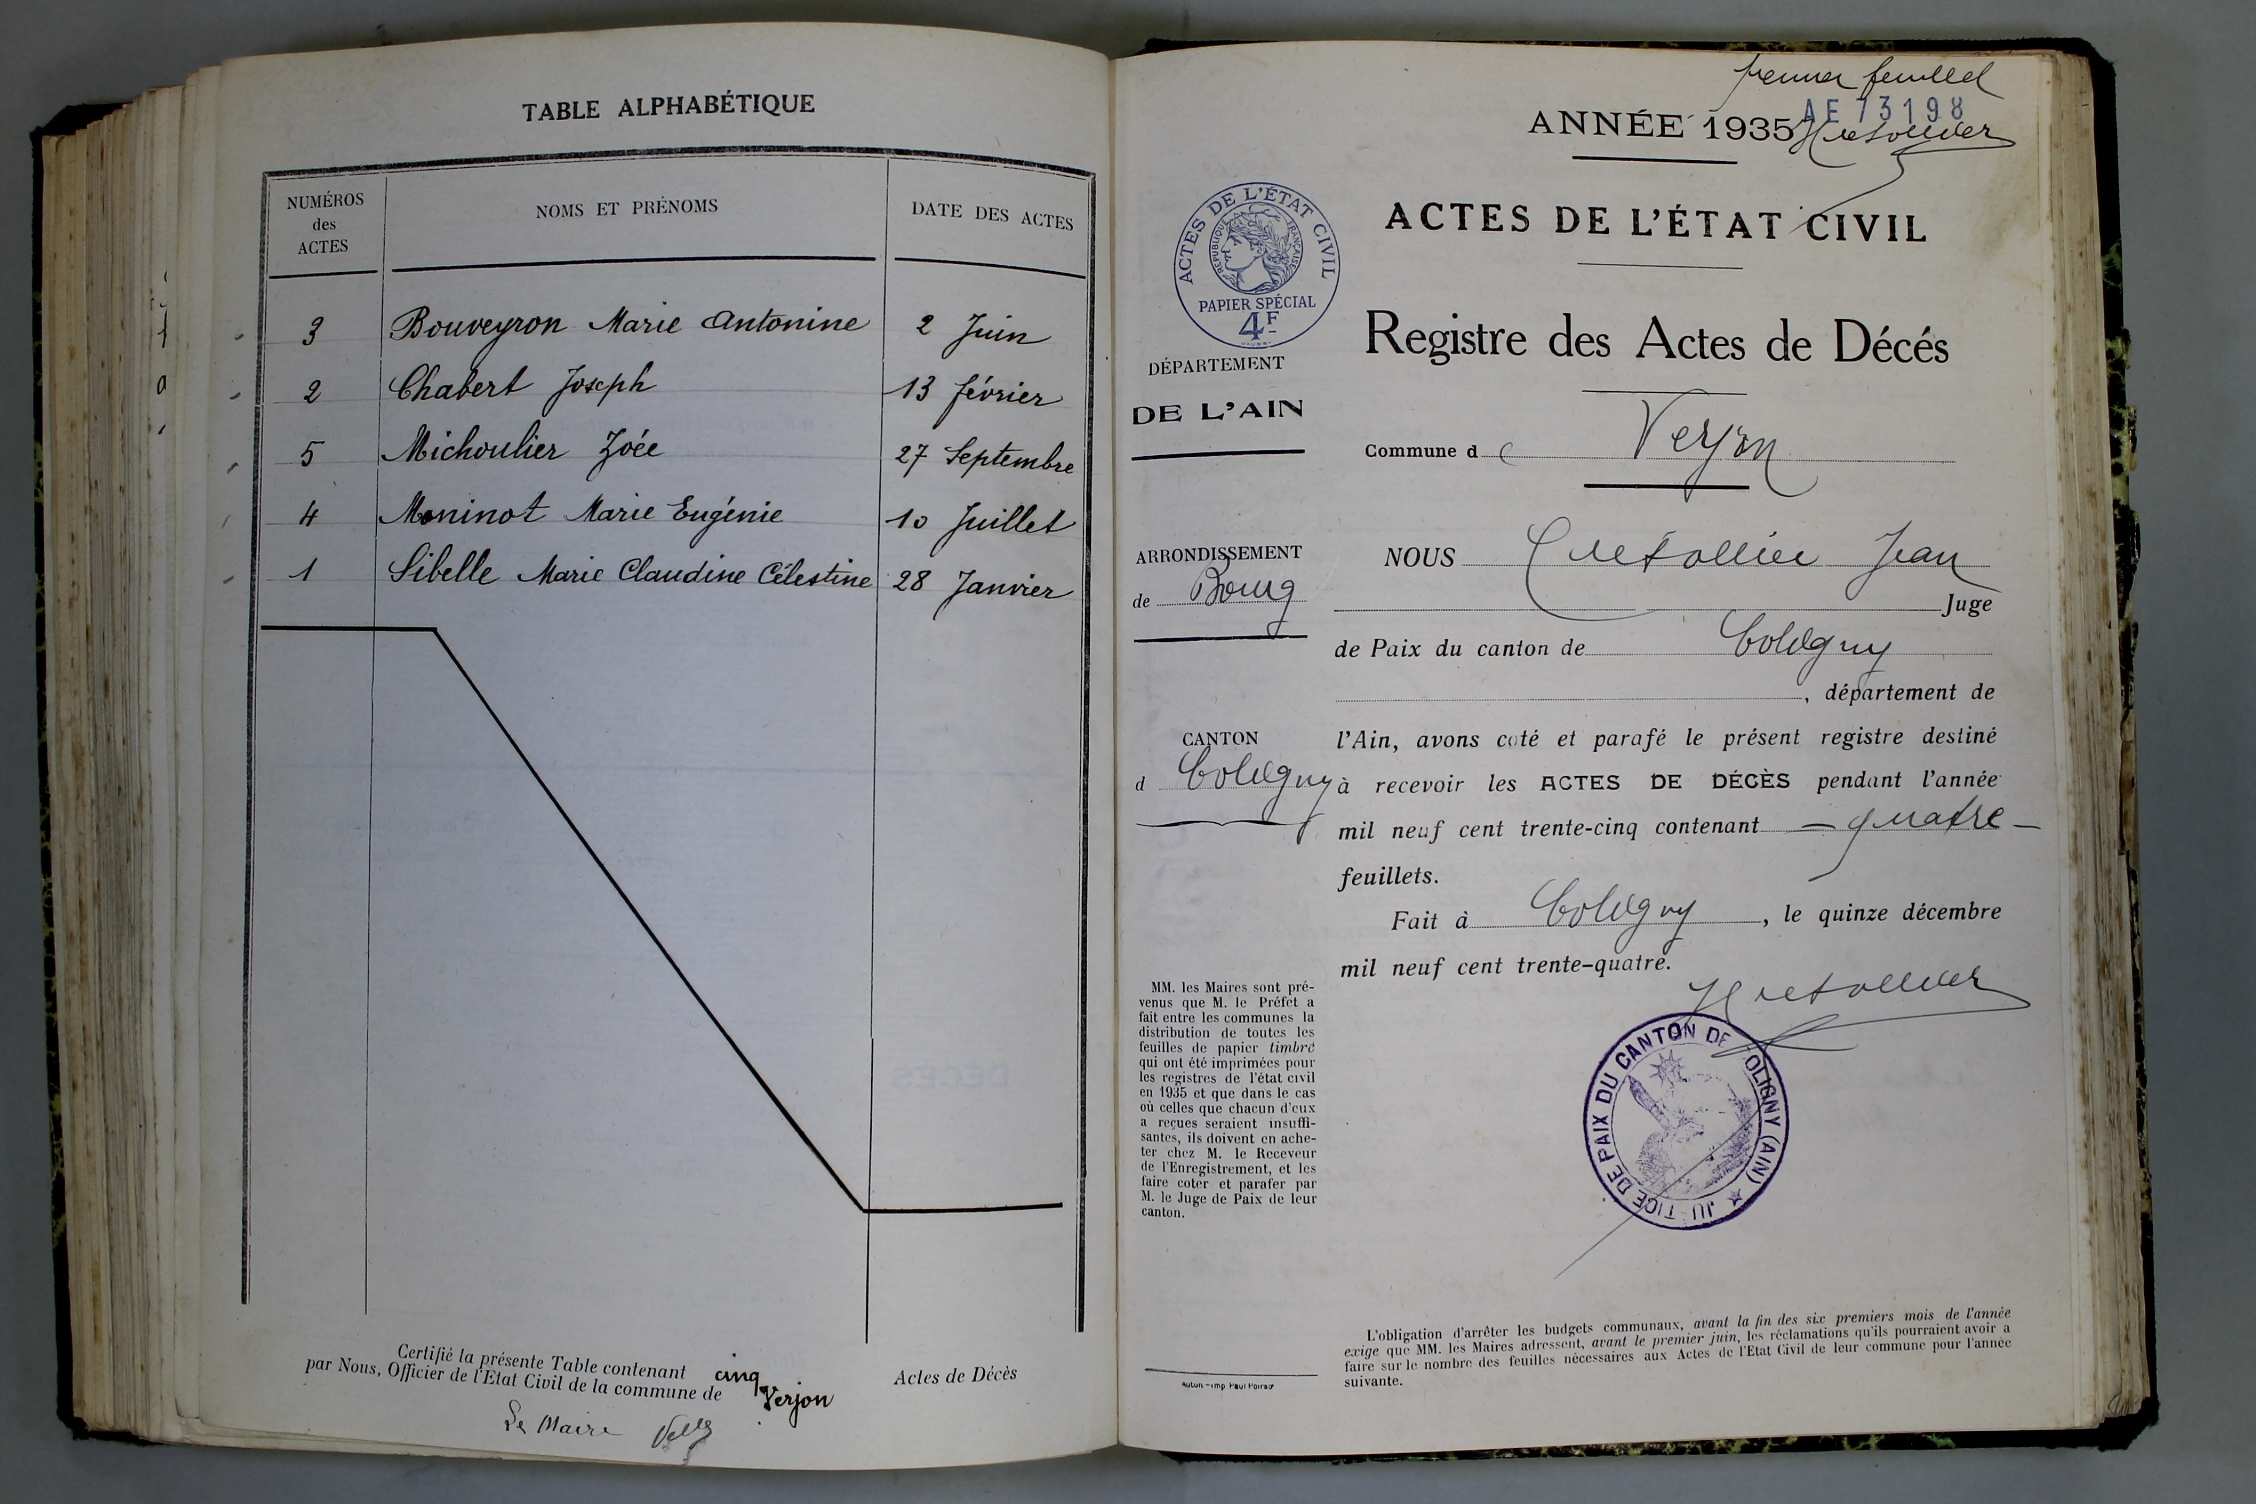 TABLE ALPHABÉTIQUE
NUMÉROS des ACTES NOMS ET PRÉNOMS DATE DES ACTES
3 Bouveyron Marie Antonine 2 Juin
2 Chabert Joseph 13 février
5 Michoulier Zoée 27 Septembre
4 Moninot Marie Eugénie 10 Juillet
1 Sibelle Marie Claudine Célestine 28 Janvier
Certifié la présente Table contenant cinq Actes de Décès
par Nous, Officier de l'Etat Civil de la commune de Verjon
Le Maire
premier feuillet
AE 73198
ANNÉE 1935
ACTES DE L'ÉTAT CIVIL
ACTES DE L'ÉTAT CIVIL
RÉPUBLIQUE FRANÇAISE
PAPIER SPÉCIAL
4F
Registre des Actes de Décés
DÉPARTEMENT
DE L'AIN
Commune de Verjon
ARRONDISSEMENT
de Bourg
CANTON
d Coligny
NOUS Cretollier Jean
Juge
de Paix du canton de Coligny
, département de
l'Ain, avons coté et parafé le présent registre destiné
à recevoir les ACTES DE DÉCÈS pendant l'année
mil neuf cent trente-cinq contenant — quatre —
feuillets.
Fait à Coligny, le quinze décembre
mil neuf cent trente-quatre.
JUSTICE DE PAIX DU CANTON DE COLIGNY (AIN)
MM. les Maires sont pré-
venus que M. le Préfet a
fait entre les communes la
distribution de toutes les
feuilles de papier timbré
qui ont été imprimées pour
les registres de l'état civil
en 1935 et que dans le cas
où celles que chacun d'eux
a reçues seraient insuffi-
santes, ils doivent en ache-
ter chez M. le Receveur
de l'Enregistrement, et les
faire coter et parafer par
M. le Juge de Paix de leur
canton.
L'obligation d'arrêter les budgets communaux, avant la fin des six premiers mois de l'année
exige que MM. les Maires adressent, avant le premier juin, les réclamations qu'ils pourraient avoir a
faire sur le nombre des feuilles nécessaires aux Actes de l'Etat Civil de leur commune pour l'année
suivante.